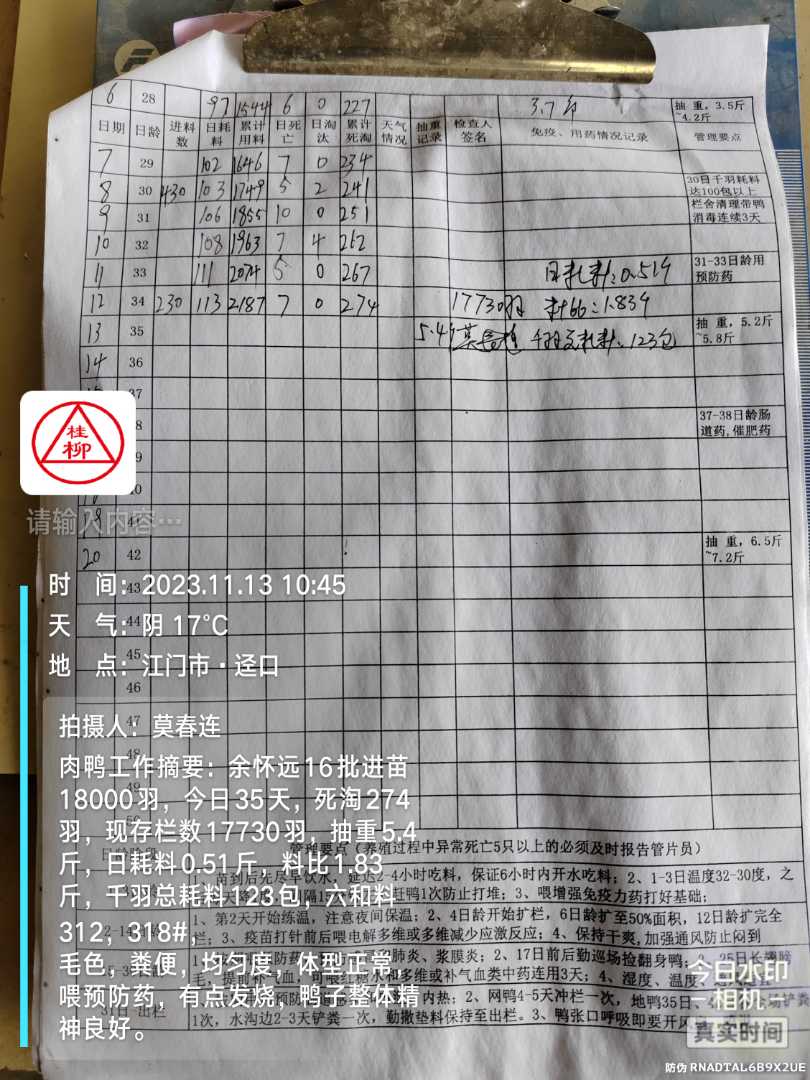 6 28 97 1544 6 0 227 3.7斤 抽 重，3.5斤
~4.2斤
日期 日龄 进料数 日耗料 累计用料 日死亡 日淘汰 累计死淘 天气情况 抽重记录 检查人签名 免疫、用药情况记录 管理要点
7 29 102 1646 7 0 234
8 30 430 103 1749 5 2 241 30日千羽耗料
达100包以上
9 31 106 1855 10 0 251 栏舍清理带鸭
消毒连续3天
10 32 108 1963 7 4 262
11 33 111 2074 5 0 267 日耗料:0.51斤 31-33日龄用
预防药
12 34 230 113 2187 7 0 274 17730羽 料比:1.83斤
13 35 5.4斤 千羽总耗料:123包 抽 重，5.2斤
~5.8斤
14 36
37
37-38日龄肠
道药,催肥药
41
20 42 抽 重，6.5斤
~7.2斤
43
44
45
46
47
48
49
桂
柳
请输入内容…
时 间：2023.11.13 10:45
天 气：阴 17℃
地 点：江门市·迳口
拍摄人：莫春连
肉鸭工作摘要：余怀远16批进苗
18000羽，今日35天，死淘274
羽，现存栏数17730羽，抽重5.4
斤，日耗料0.51斤，料比1.83
斤，千羽总耗料123包，六和料
312，318#，
毛色，粪便，均匀度，体型正常，
喂预防药，有点发烧，鸭子整体精
神良好。
管理要点（养殖过程中异常死亡5只以上的必须及时报告管片员）
苗到后先尽早饮水，延迟2-4小时吃料，保证6小时内开水吃料；2、1-3日温度32-30度，之
鸭1次防止打堆；3、喂增强免疫力药打好基础；
1、第2天开始练温，注意夜间保温；2、4日龄开始扩栏，6日龄扩至50%面积，12日龄扩完全
栏；3、疫苗打针前后喂电解多维或多维减少应激反应；4、保持干爽,加强通风防止闷到
肺炎、浆膜炎；2、17日前后勤巡场捡翻身鸭；
和多维或补气血类中药连用3天；4、湿度、温度、
31日-出栏
内热；2、网鸭4-5天冲栏一次，地鸭35日、
1次，水沟边2-3天铲粪一次，勤撒垫料保持至出栏。3、鸭张口呼吸即要开风
今日水印
相机
真实时间
防伪 RNADTAL6B9X2UE